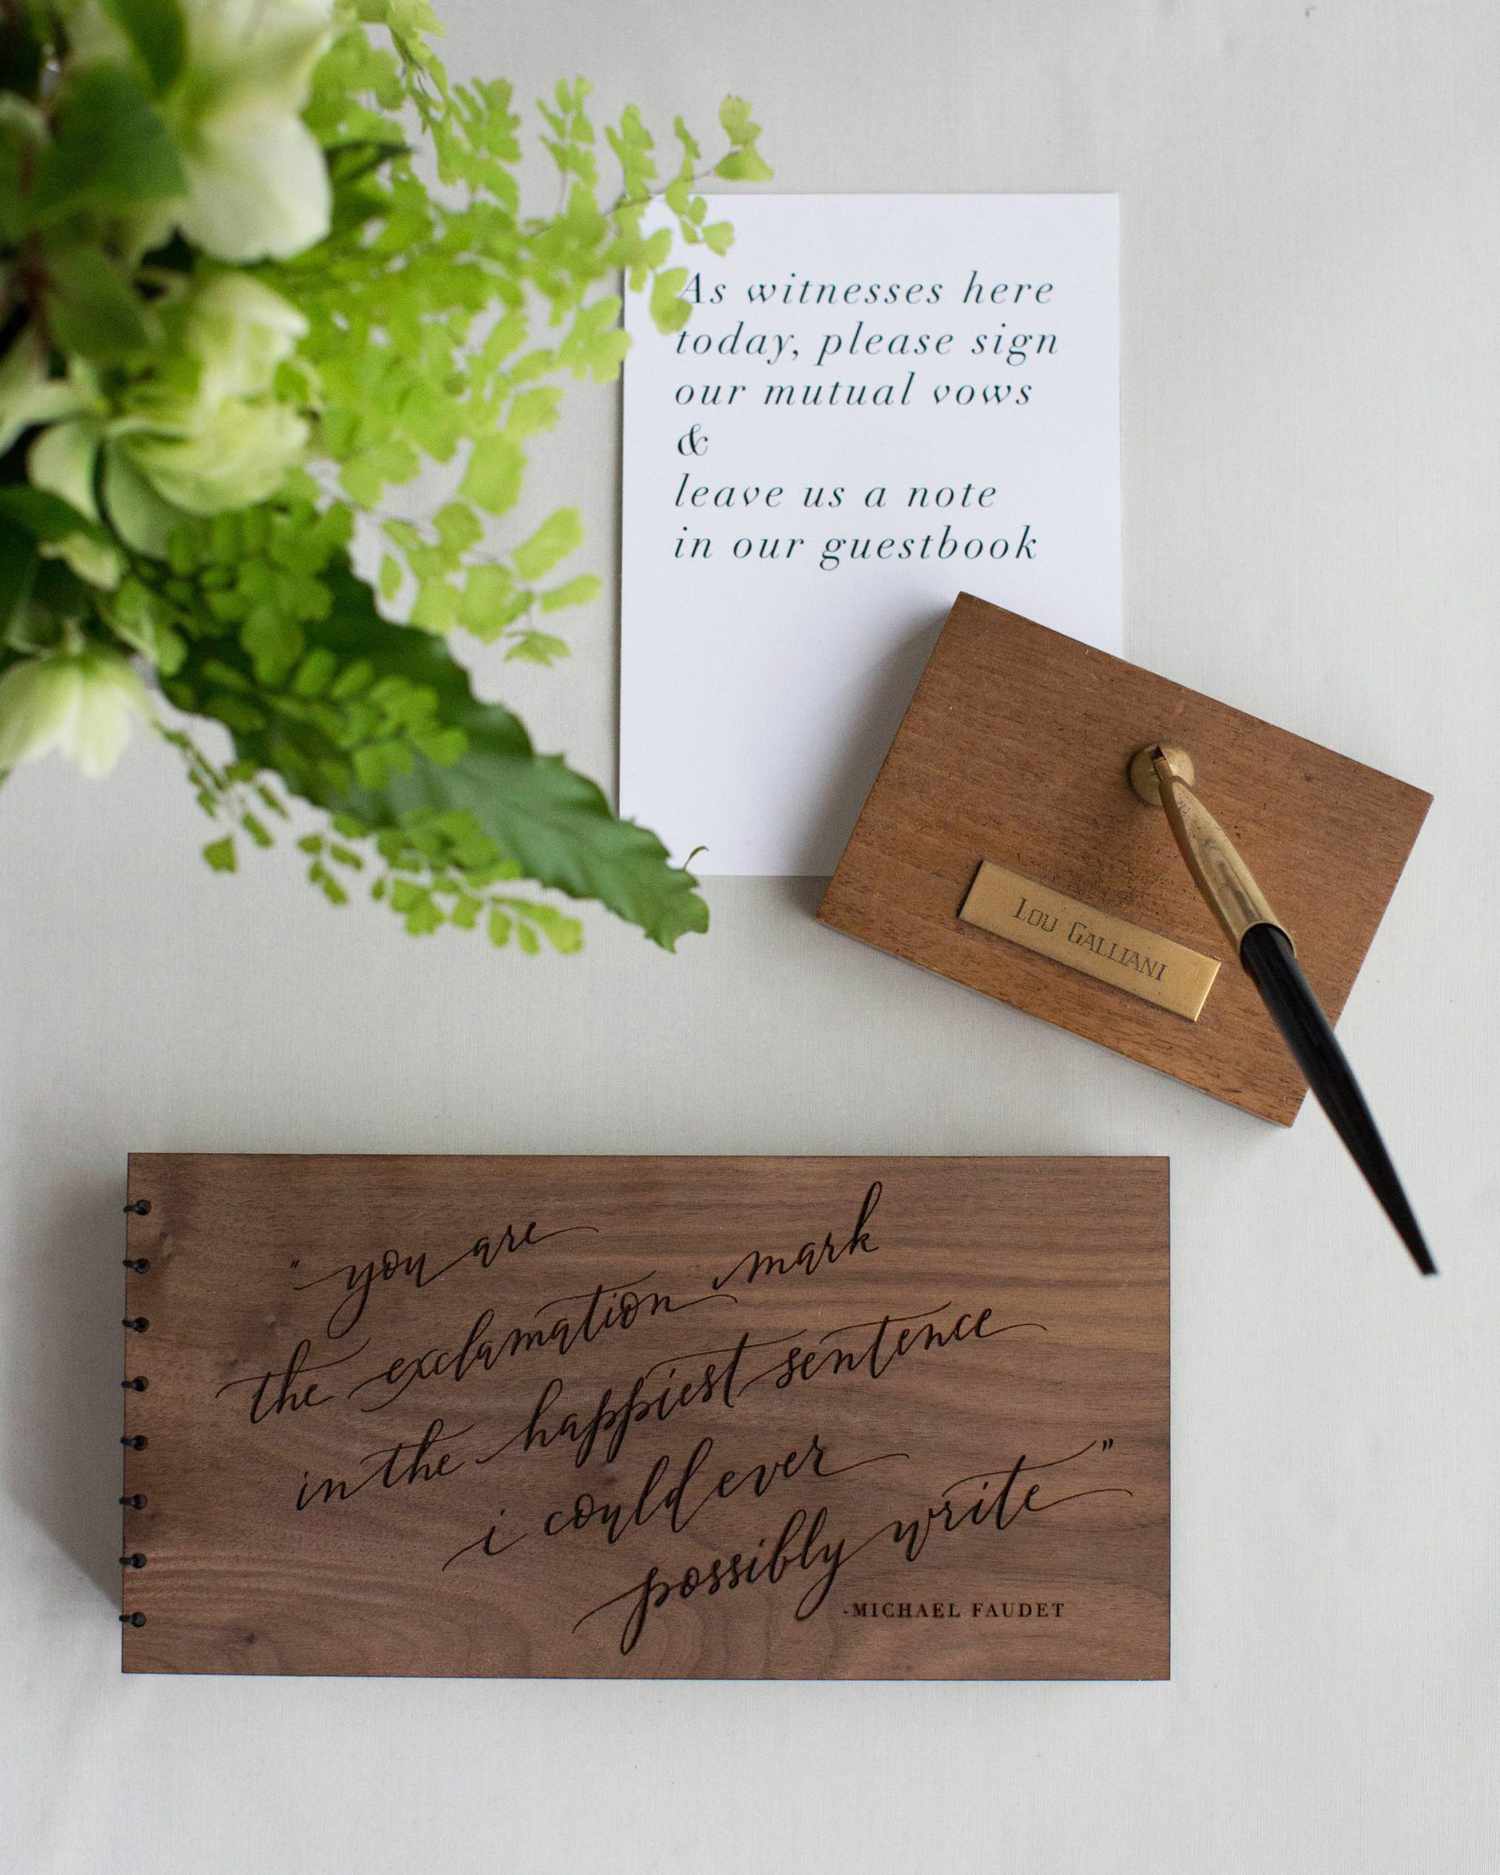 As witnesses here
today, please sign
our mutual vows
&
leave us a note
in our guestbook
LOU GALLIANI
"you are
the exclamation mark
in the happiest sentence
i could ever
possibly write"
-MICHAEL FAUDET